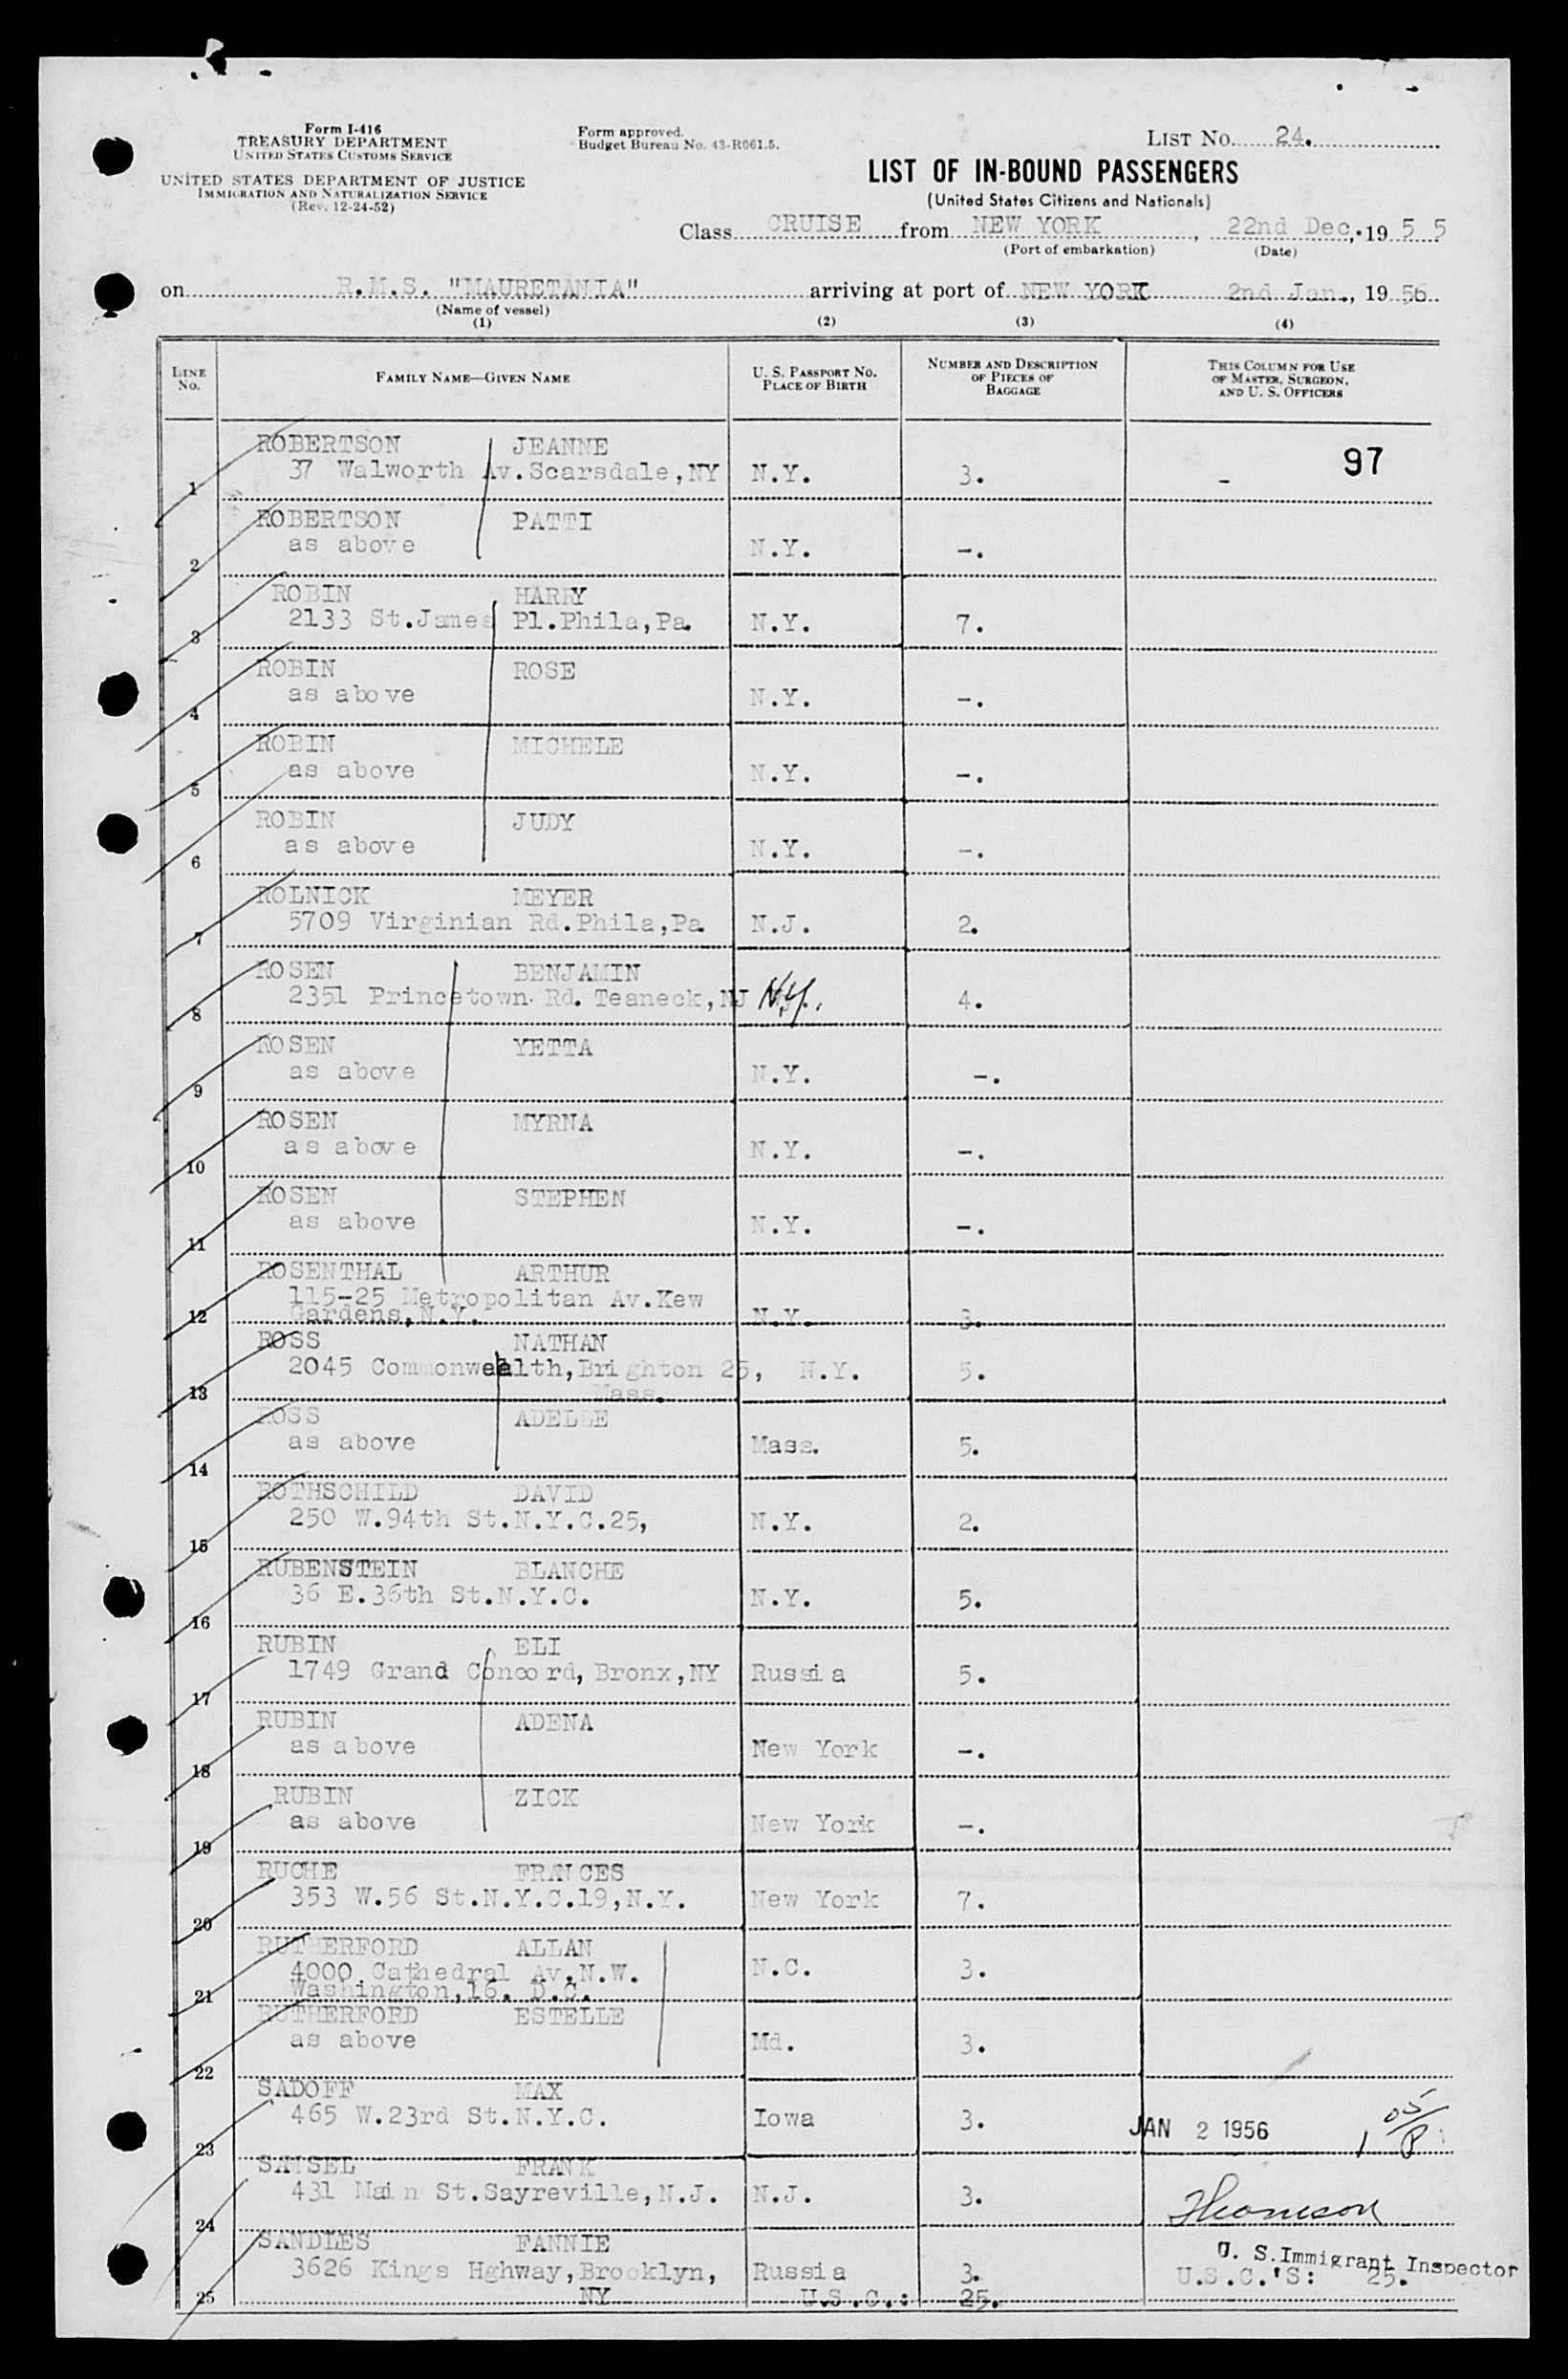 Form I-416
TREASURY DEPARTMENT
UNITED STATES CUSTOMS SERVICE
UNITED STATES DEPARTMENT OF JUSTICE
IMMIGRATION AND NATURALIZATION SERVICE
(Rev. 12-24-52)
Form approved.
Budget Bureau No. 43-R061.5.
LIST NO. 24.
LIST OF IN-BOUND PASSENGERS
(United States Citizens and Nationals)
Class CRUISE from NEW YORK, 22nd Dec, 1955
(Port of embarkation) (Date)
on R.M.S. "MAURETANIA" arriving at port of NEW YORK 2nd Jan., 1956
(Name of vessel)
(1) (2) (3) (4)
LINE NO. FAMILY NAME—GIVEN NAME U. S. PASSPORT NO. PLACE OF BIRTH NUMBER AND DESCRIPTION OF PIECES OF BAGGAGE THIS COLUMN FOR USE OF MASTER, SURGEON, AND U. S. OFFICERS
ROBERTSON JEANNE
97
1 37 Walworth Av.Scarsdale,NY N.Y. 3. -
ROBERTSON PATTI
2 as above N.Y. -.
ROBIN HARRY
3 2133 St.James Pl.Phila,Pa. N.Y. 7.
ROBIN ROSE
4 as above N.Y. -.
ROBIN MICHELE
5 as above N.Y. -.
ROBIN JUDY
6 as above N.Y. -.
ROLNICK MEYER
7 5709 Virginian Rd.Phila,Pa N.J. 2.
ROSEN BENJAMIN
8 2351 Princetown Rd. Teaneck,NJ N.Y. 4.
ROSEN YETTA
9 as above N.Y. -.
ROSEN MYRNA
10 as above N.Y. -.
ROSEN STEPHEN
11 as above N.Y. -.
ROSENTHAL ARTHUR
115-25 Metropolitan Av.Kew
12 Gardens,N.Y. N.Y. 3.
ROSS NATHAN
2045 Commonwealth,Brighton 25, N.Y. 5.
13 Mass.
ROSS ADELLE
14 as above Mass. 5.
ROTHSCHILD DAVID
15 250 W.94th St.N.Y.C.25, N.Y. 2.
RUBENSTEIN BLANCHE
16 36 E.36th St.N.Y.C. N.Y. 5.
RUBIN ELI
17 1749 Grand Concord, Bronx,NY Russia 5.
RUBIN ADENA
18 as above New York -.
RUBIN ZICK
19 as above New York -.
RUCHE FRANCES
20 353 W.56 St.N.Y.C.19,N.Y. New York 7.
RUTHERFORD ALLAN
4000 Cathedral Av.N.W. N.C. 3.
21 Washington,16. D.C.
RUTHERFORD ESTELLE
22 as above Md. 3.
SADOFF MAX
23 465 W.23rd St.N.Y.C. Iowa 3. JAN 2 1956
SAMSEL FRANK
24 431 Main St.Sayreville,N.J. N.J. 3.
SANDLES FANNIE
U. S. Immigrant Inspector
3626 Kings Hghway,Brooklyn, Russia 3. U.S.C.'S: 25.
25 NY U.S.C.: 25.